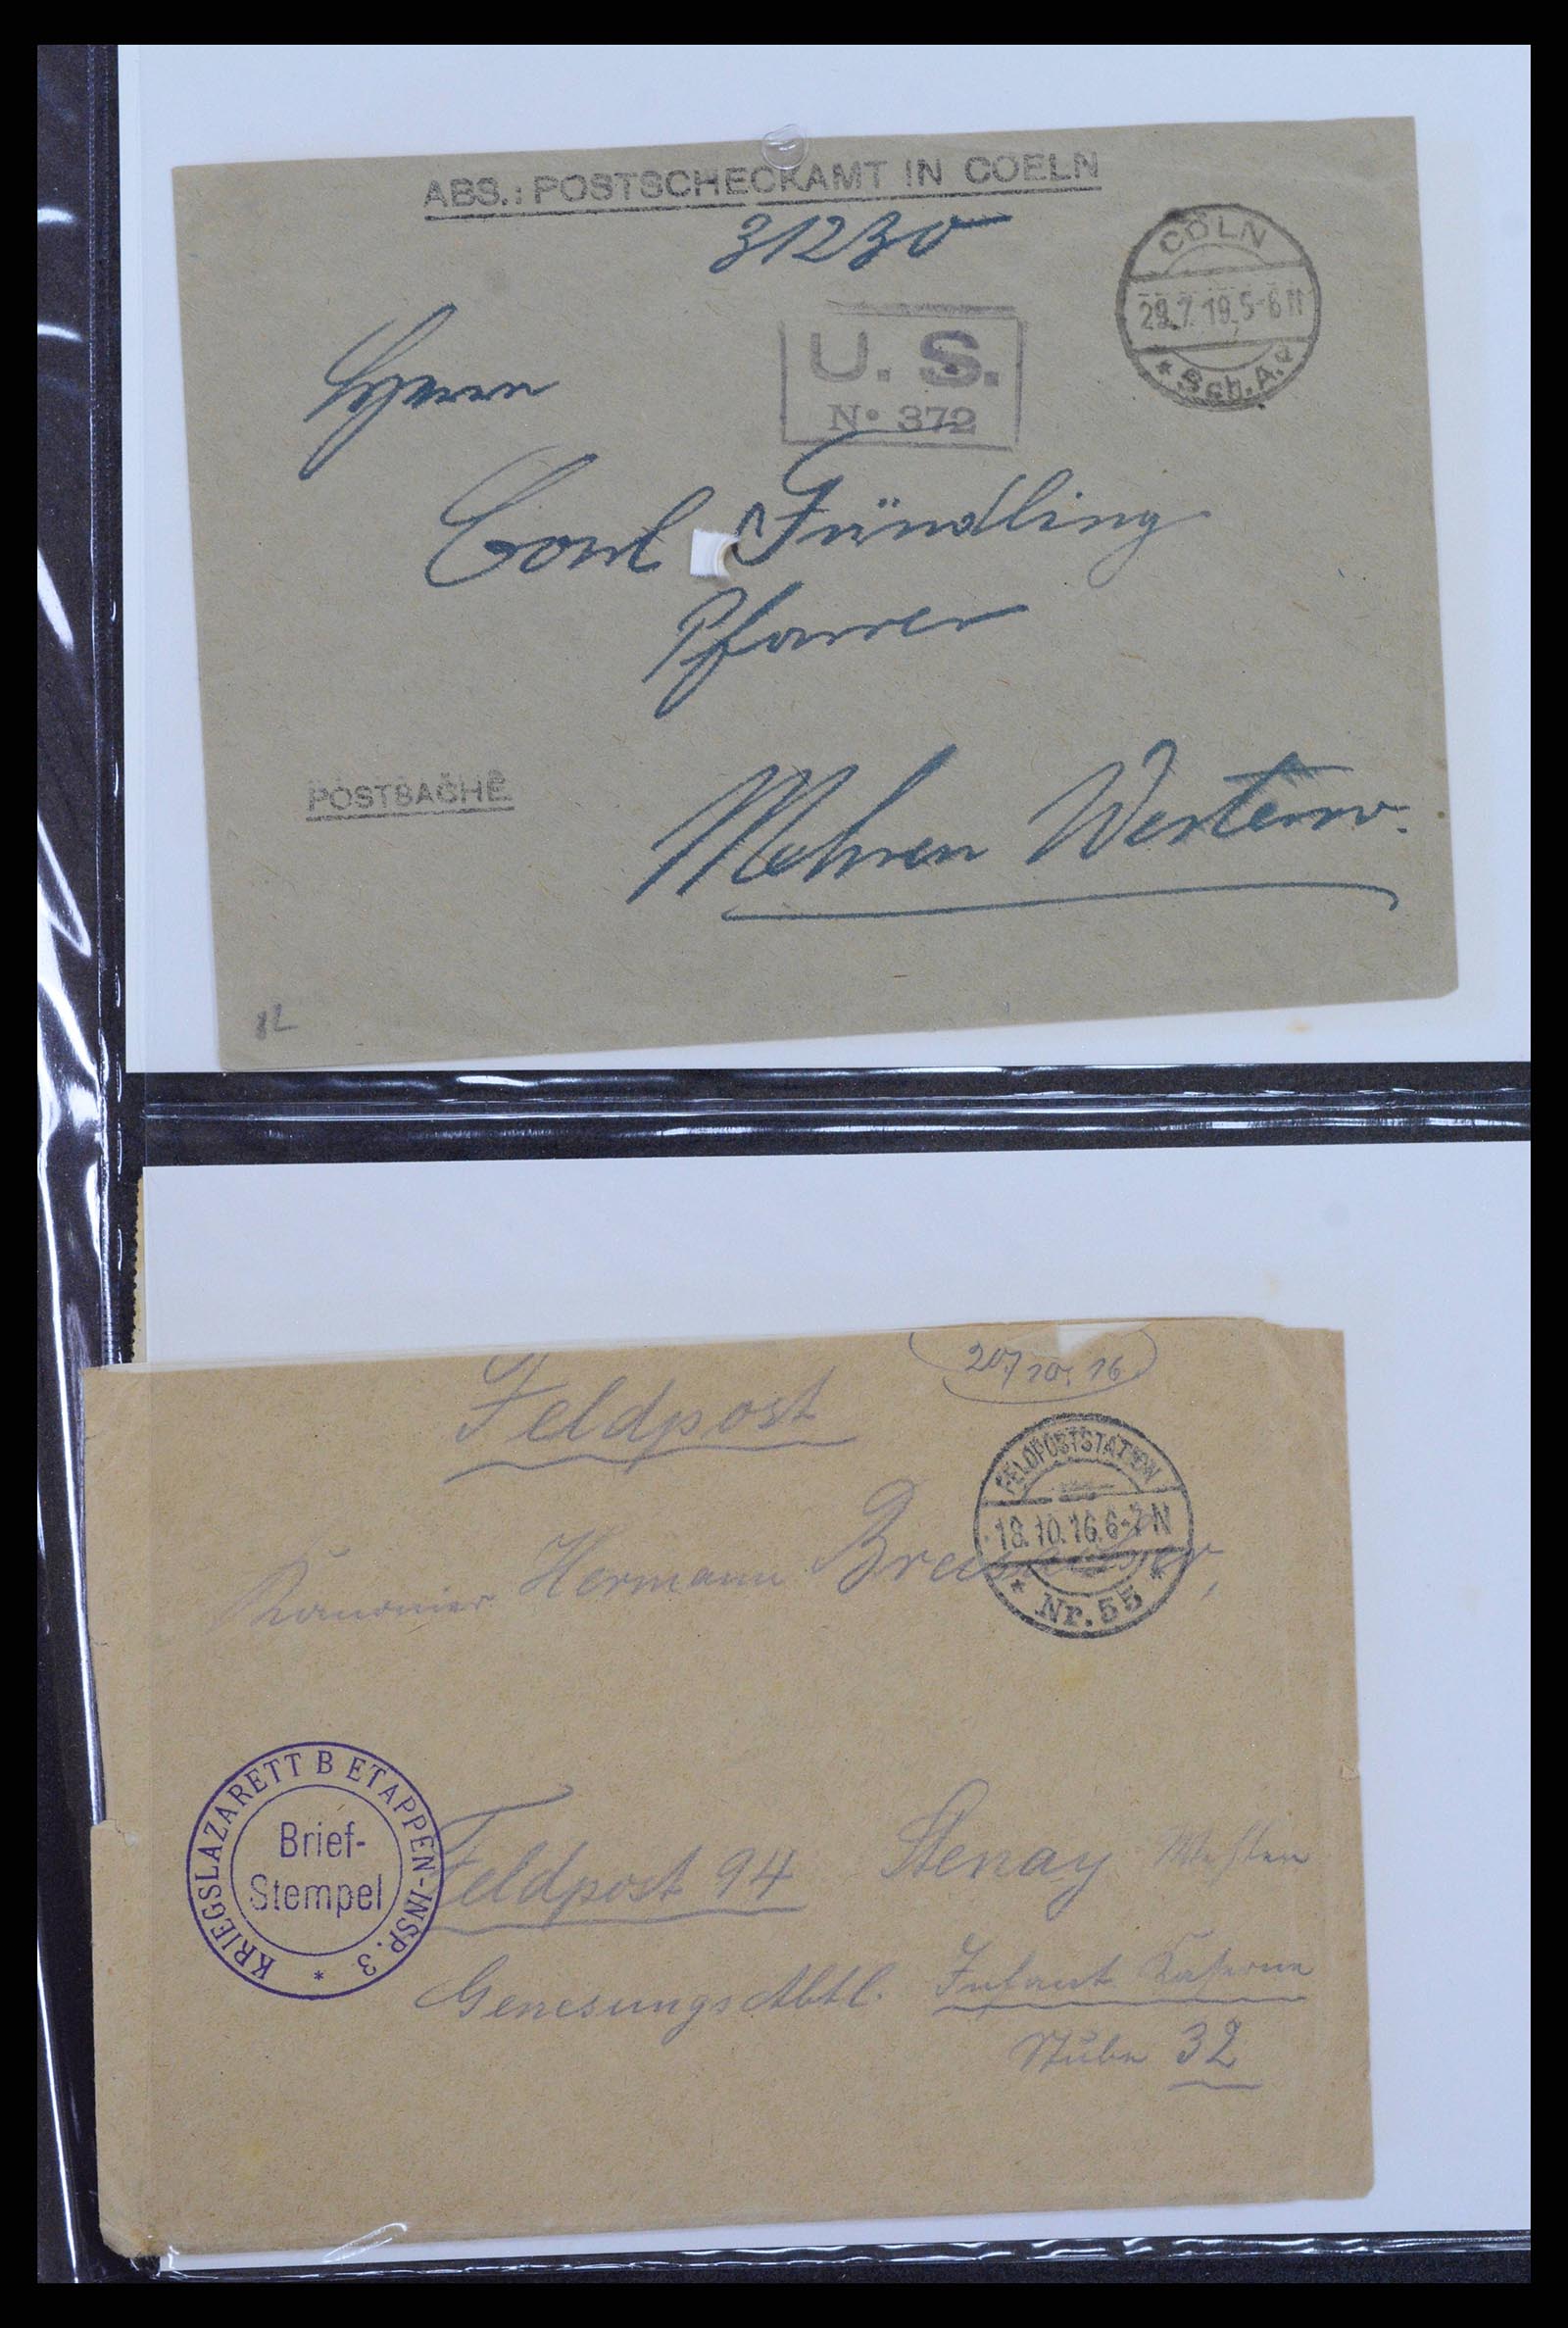 ABS.: POSTSCHECKAMT IN COELN
31230
CÖLN
29.7.19.5-6 N
* Sch.A. *
U. S.
No 372
Herrn
Carl Fündling
Pfarrer
POSTSACHE
Mehren Westerw.
12
Feldpost
20/10.16
FELDPOSTSTATION
18.10.16.6-7N
* Nr. 55 *
Kanonier Hermann
KRIEGSLAZARETT B ETAPPEN-INSP. 3 *
Brief-
Stempel
Feldpost 94 Stenay Westen
Genesungs Abtl. Infant. Kaserne
Stube 32